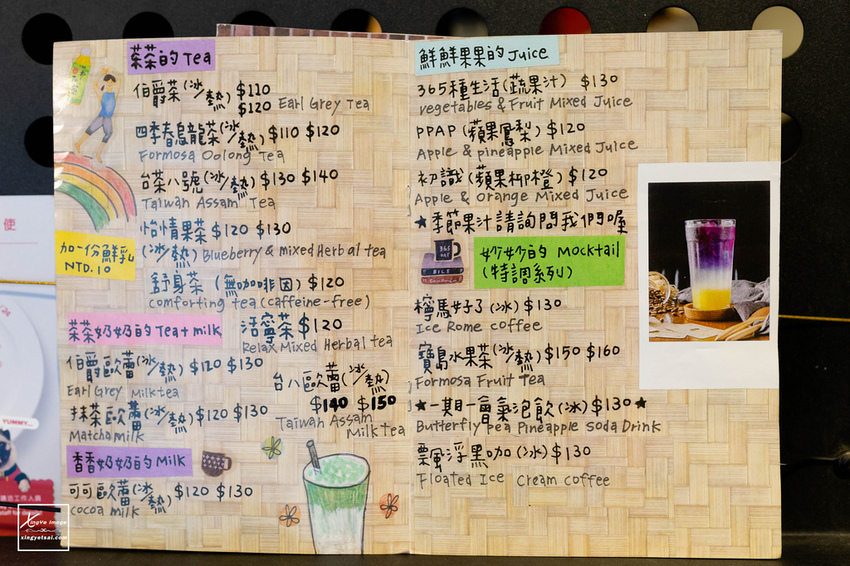 茶茶的 Tea
伯爵茶(冰/熱) $110 $120 Earl Grey Tea
四季春烏龍茶(冰/熱) $110 $120
Formosa Oolong Tea
台茶八號(冰/熱) $130 $140
Taiwan Assam Tea
怡情果茶 $120 $130
(冰/熱) Blueberry & mixed Herbal tea
加一份鮮乳
NTD.10
舒身茶 (無咖啡因) $120
comforting tea (caffeine-free)
活寧茶 $120
Relax Mixed Herbal tea
茶茶奶奶的Tea+milk
伯爵歐蕾(冰/熱) $120 $130
Earl Grey Milktea
台八歐蕾(冰/熱)
$140 $150
Taiwan Assam
Milk Tea
抹茶歐蕾(冰/熱) $120 $130
Matcha milk
香香奶奶的Milk
可可歐蕾(冰/熱) $120 $130
cocoa milk
鮮鮮果果的Juice
365種生活(蔬果汁) $130
vegetables & Fruit Mixed Juice
PPAP (蘋果鳳梨) $120
Apple & pineapple Mixed Juice
初識(蘋果柳橙) $120
Apple & orange Mixed Juice
★季節果汁請詢問我們喔
妙妙的 Mocktail
(特調系列)
檸馬好了(冰) $130
Ice Rome coffee
寶島水果茶(冰/熱) $150 $160
Formosa Fruit Tea
★一期一會氣泡飲(冰) $130★
Butterfly pea Pineapple soda Drink
飄風浮黑咖(冰) $130
Floated Ice cream coffee
使
YUMMY...
Xingye image
xingyetsai.com